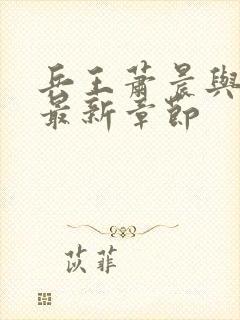 兵王蕭晨與
最新章節
苡菲